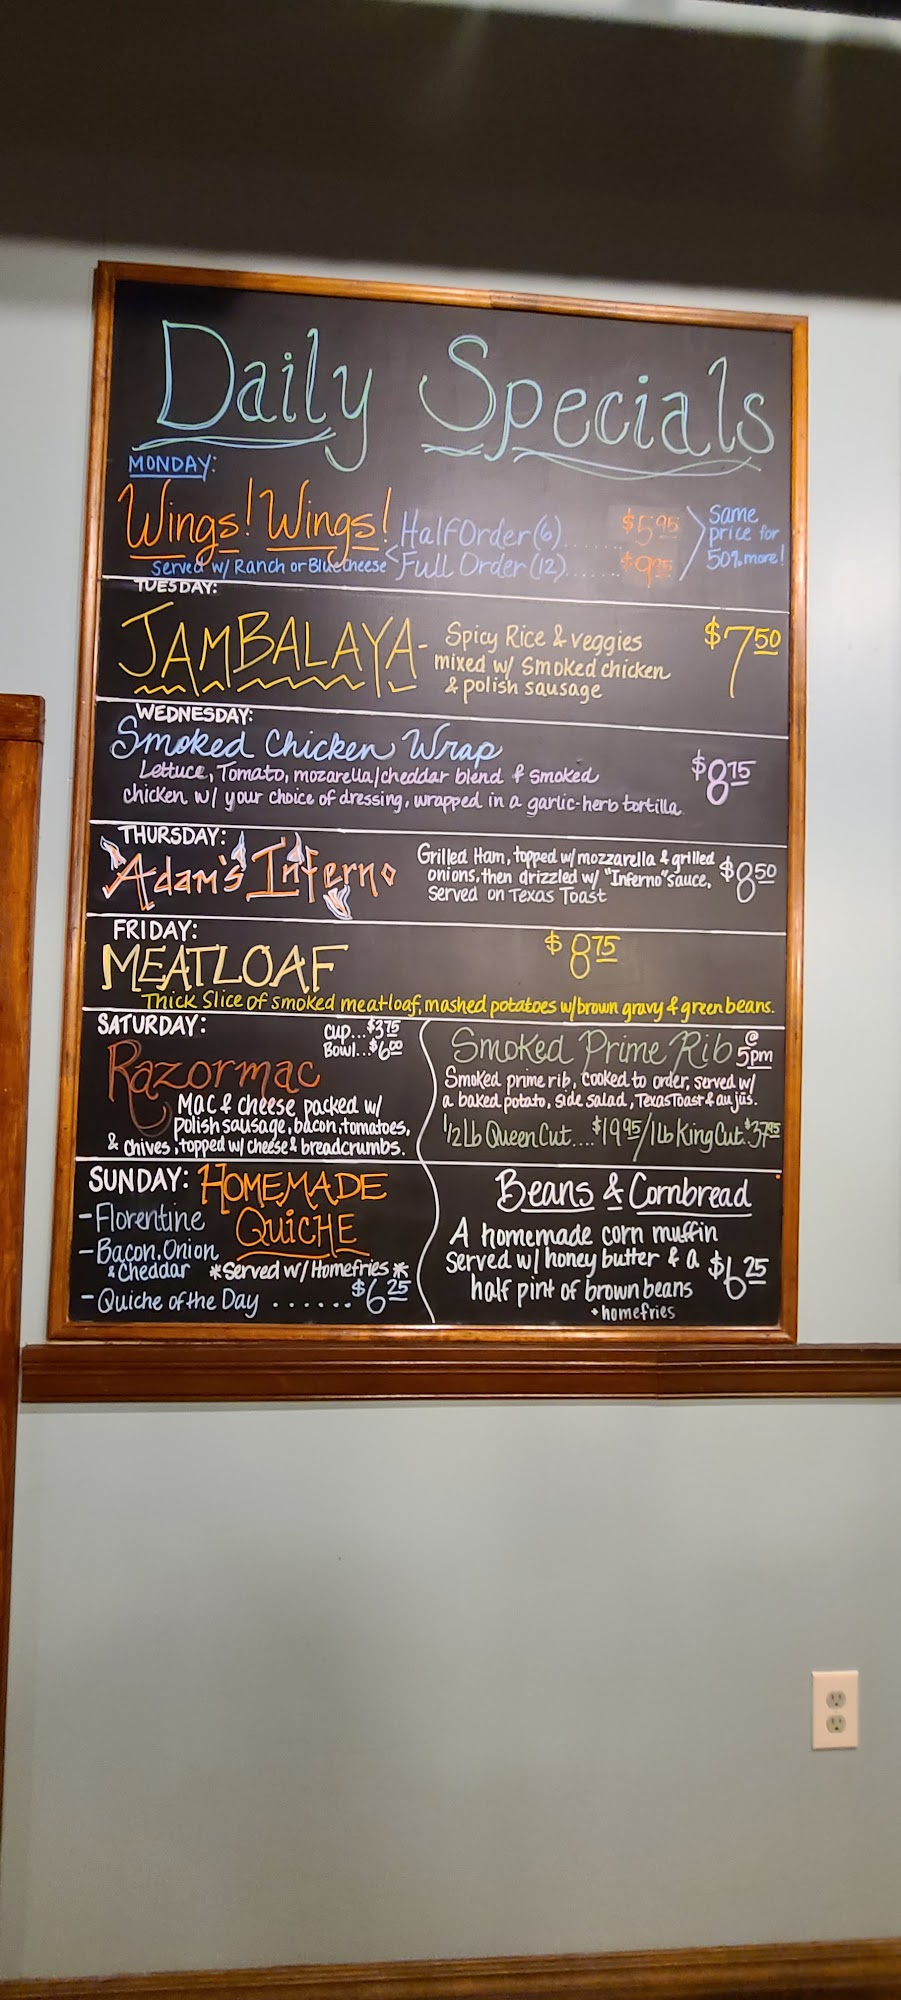 Daily Specials
MONDAY:
Wings! Wings!
Half Order (6)........ $5.95
Full Order (12)....... $9.95
Served w/ Ranch or Bluecheese
Same
price for
50% more!
TUESDAY:
JAMBALAYA-
Spicy Rice & veggies
mixed w/ Smoked chicken
& polish sausage
$7.50
WEDNESDAY:
Smoked Chicken Wrap
Lettuce, Tomato, mozarella/cheddar blend & Smoked
chicken w/ your choice of dressing, wrapped in a garlic-herb tortilla.
$8.75
THURSDAY:
Adam's Inferno
Grilled Ham, topped w/ mozzarella & grilled
onions, then drizzled w/ "Inferno" sauce,
Served on Texas Toast
$8.50
FRIDAY:
MEATLOAF
$8.75
Thick Slice of smoked meatloaf, mashed potatoes w/brown gravy & green beans.
SATURDAY:
Cup...$3.75
Bowl...$6.00
Razormac
Mac & cheese packed w/
polish sausage, bacon, tomatoes,
& chives, topped w/ cheese & breadcrumbs.
Smoked Prime Rib @ 5pm
Smoked prime rib, cooked to order, served w/
a baked potato, side salad, Texas Toast & au jus.
1/2 Lb Queen Cut....$19.95/1Lb King Cut.$37.95
SUNDAY: HOMEMADE
QUICHE
-Florentine
-Bacon, Onion
& Cheddar
*Served w/ Homefries*
-Quiche of the Day ...... $6.25
Beans & Cornbread
A homemade corn muffin
Served w/ honey butter & a
half pint of brown beans
+ homefries
$6.25